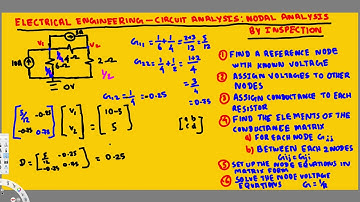 ELECTRICAL ENGINEERING - CIRCUIT ANALYSIS: NODAL ANALYSIS
BY INSPECTION
5A
V1
V2
10A
4-Ω
6-Ω
2-Ω
1/2
0V
G11 = 1/6 + 1/4 = 2+3/12 = 5/12
G22 = 1/4 + 1/2 = 1+2/4
= 3/4
G12 = 1/4 = 0.25
= 0.75
[5/12 -0.25
-0.25 0.75] [V1
V2] = [10-5
5]
[a b
c d]
D = [5/12 -0.25
-0.25 0.75] = 0.25
① FIND A REFERENCE NODE
WITH KNOWN VOLTAGE
② ASSIGN VOLTAGES TO OTHER
NODES
③ ASSIGN CONDUCTANCE TO EACH
RESISTOR
④ FIND THE ELEMENTS OF THE
CONDUCTANCE MATRIX
a) FOR EACH NODE Gjj
b) BETWEEN EACH 2 NODES
Gij = Gji
⑤ SET UP THE NODE EQUATIONS IN
MATRIX FORM
⑥ SOLVE THE NODE VOLTAGE
EQUATIONS G = 1/R